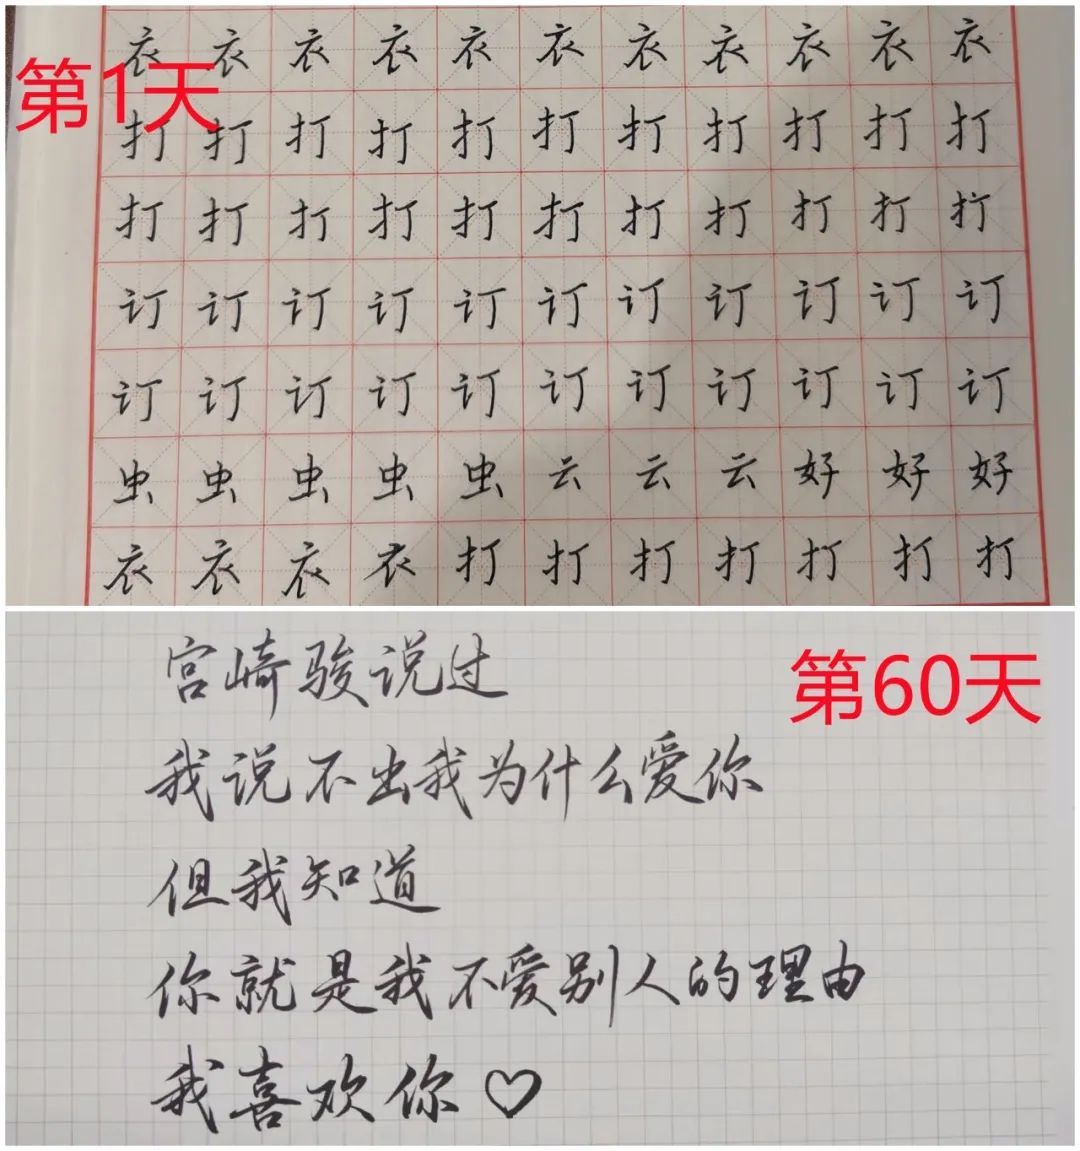 第1天
衣衣衣衣衣衣衣衣衣衣衣
打打打打打打打打打打打
打打打打打打打打打打打
订订订订订订订订订订订
订订订订订订订订订订订
虫虫虫虫虫云云云好好好
衣衣衣衣打打打打打打打
第60天
宫崎骏说过
我说不出我为什么爱你
但我知道
你就是我不爱别人的理由
我喜欢你♡